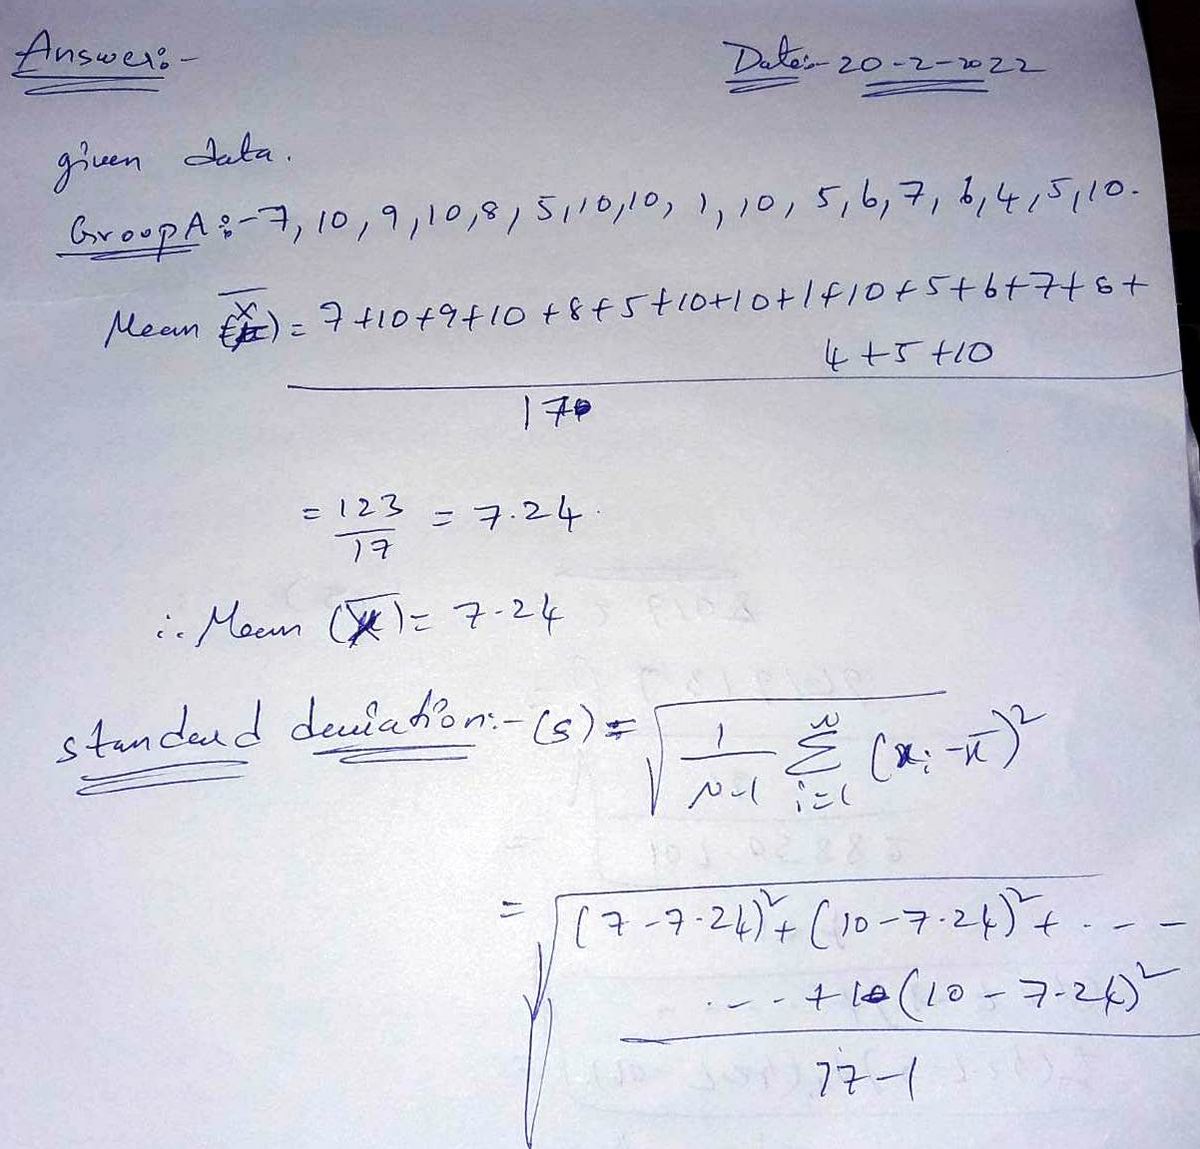 Answer:-
Date:- 20-2-2022
given data.
Group A:- 7, 10, 9, 10, 8, 5, 10, 10, 1, 10, 5, 6, 7, 6, 4, 5, 10.
Mean (x̄) = 7+10+9+10+8+5+10+10+1+10+5+6+7+6+
4+5+10
17
= 123/17 = 7.24.
∴ Mean (x̄) = 7.24
standard deviation:- (s) = √(1/(N-1) Σ_{i=1}^{N} (xᵢ - x̄)²)
= √((7-7.24)² + (10-7.24)² + . - - -
. - - - + (10-7.24)²
17-1